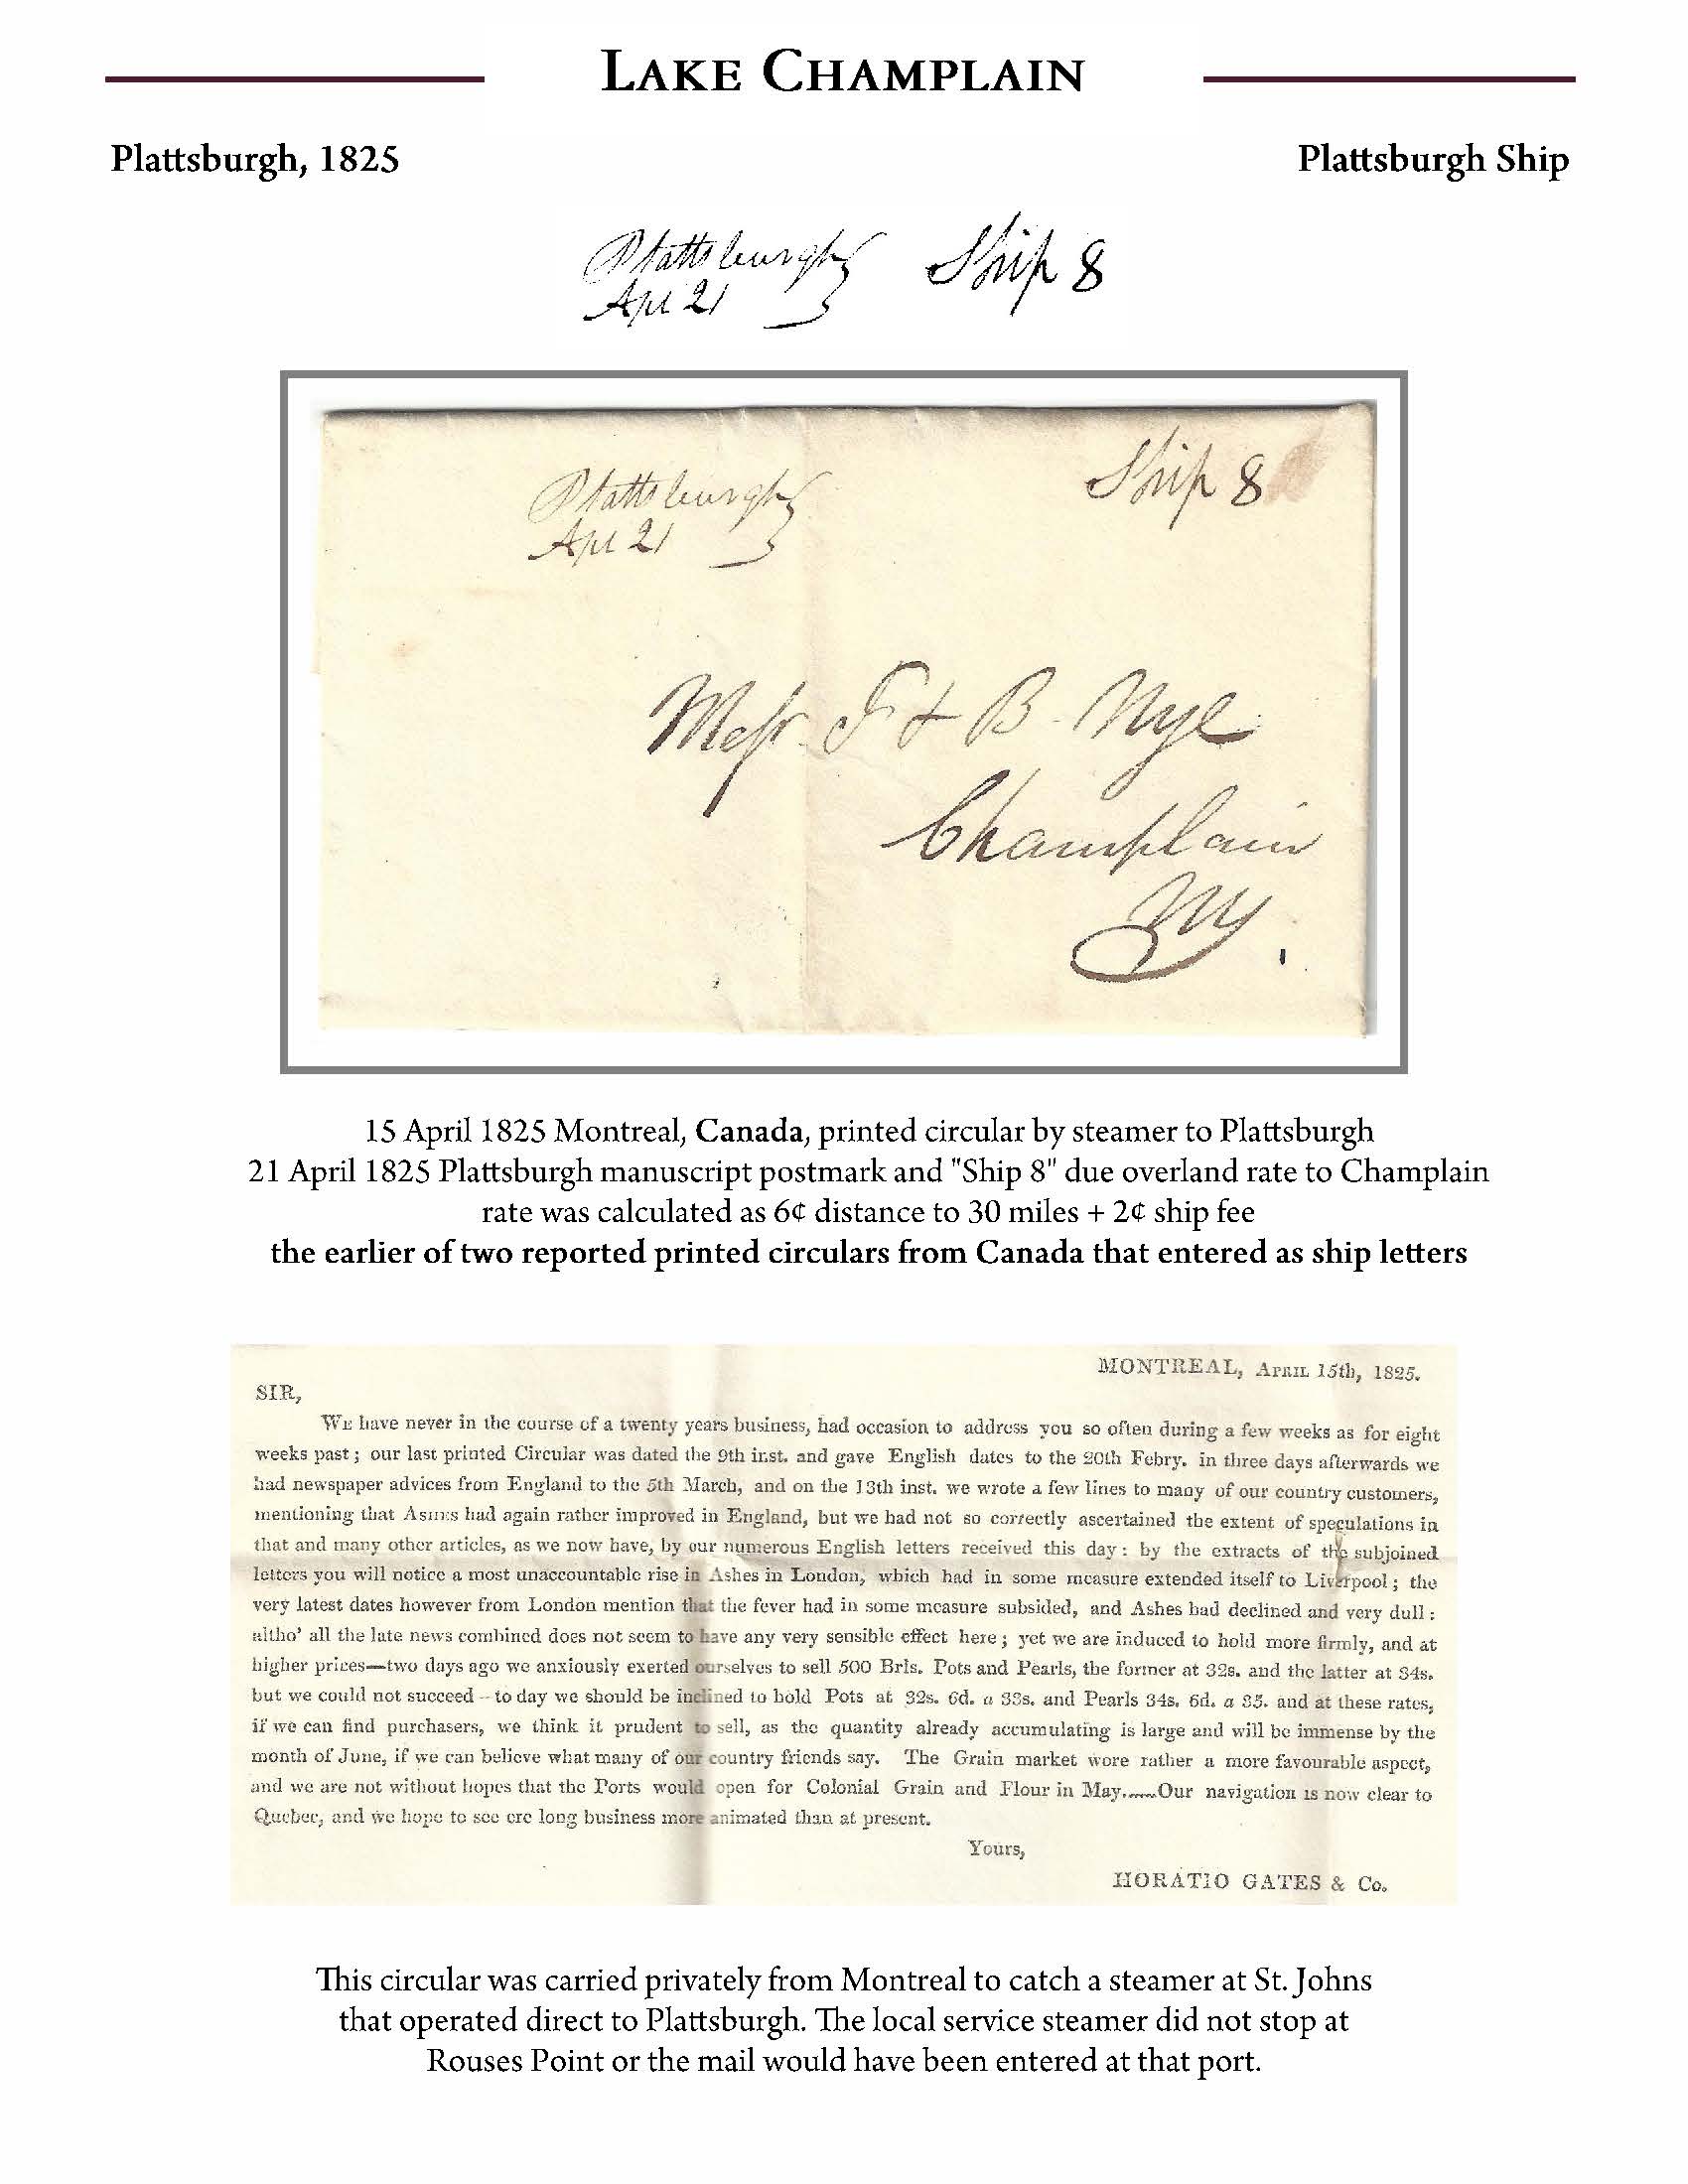 LAKE CHAMPLAIN
Plattsburgh, 1825
Plattsburgh Ship
Plattsburgh Ship 8
Apl 21
Plattsburgh Ship 8
Apl 21
Messr. J & B. Nye
Champlain
NY.
15 April 1825 Montreal, Canada, printed circular by steamer to Plattsburgh
21 April 1825 Plattsburgh manuscript postmark and "Ship 8" due overland rate to Champlain
rate was calculated as 6¢ distance to 30 miles + 2¢ ship fee
the earlier of two reported printed circulars from Canada that entered as ship letters
MONTREAL, APRIL 15th, 1825.
SIR,
WE have never in the course of a twenty years business, had occasion to address you so often during a few weeks as for eight
weeks past; our last printed Circular was dated the 9th inst. and gave English dates to the 20th Febry. in three days afterwards we
had newspaper advices from England to the 5th March, and on the 13th inst. we wrote a few lines to many of our country customers,
mentioning that ASHES had again rather improved in England, but we had not so correctly ascertained the extent of speculations in
that and many other articles, as we now have, by our numerous English letters received this day: by the extracts of the subjoined
letters you will notice a most unaccountable rise in Ashes in London, which had in some measure extended itself to Liverpool; the
very latest dates however from London mention that the fever had in some measure subsided, and Ashes had declined and very dull:
altho' all the late news combined does not seem to have any very sensible effect here; yet we are induced to hold more firmly, and at
higher prices—two days ago we anxiously exerted ourselves to sell 500 Brls. Pots and Pearls, the former at 32s. and the latter at 34s.
but we could not succeed--to day we should be inclined to hold Pots at 32s. 6d. a 33s. and Pearls 34s. 6d. a 35. and at these rates,
if we can find purchasers, we think it prudent to sell, as the quantity already accumulating is large and will be immense by the
month of June, if we can believe what many of our country friends say. The Grain market wore rather a more favourable aspect,
and we are not without hopes that the Ports would open for Colonial Grain and Flour in May.——Our navigation is now clear to
Quebec, and we hope to see ere long business more animated than at present.
Yours,
HORATIO GATES & Co.
This circular was carried privately from Montreal to catch a steamer at St. Johns
that operated direct to Plattsburgh. The local service steamer did not stop at
Rouses Point or the mail would have been entered at that port.